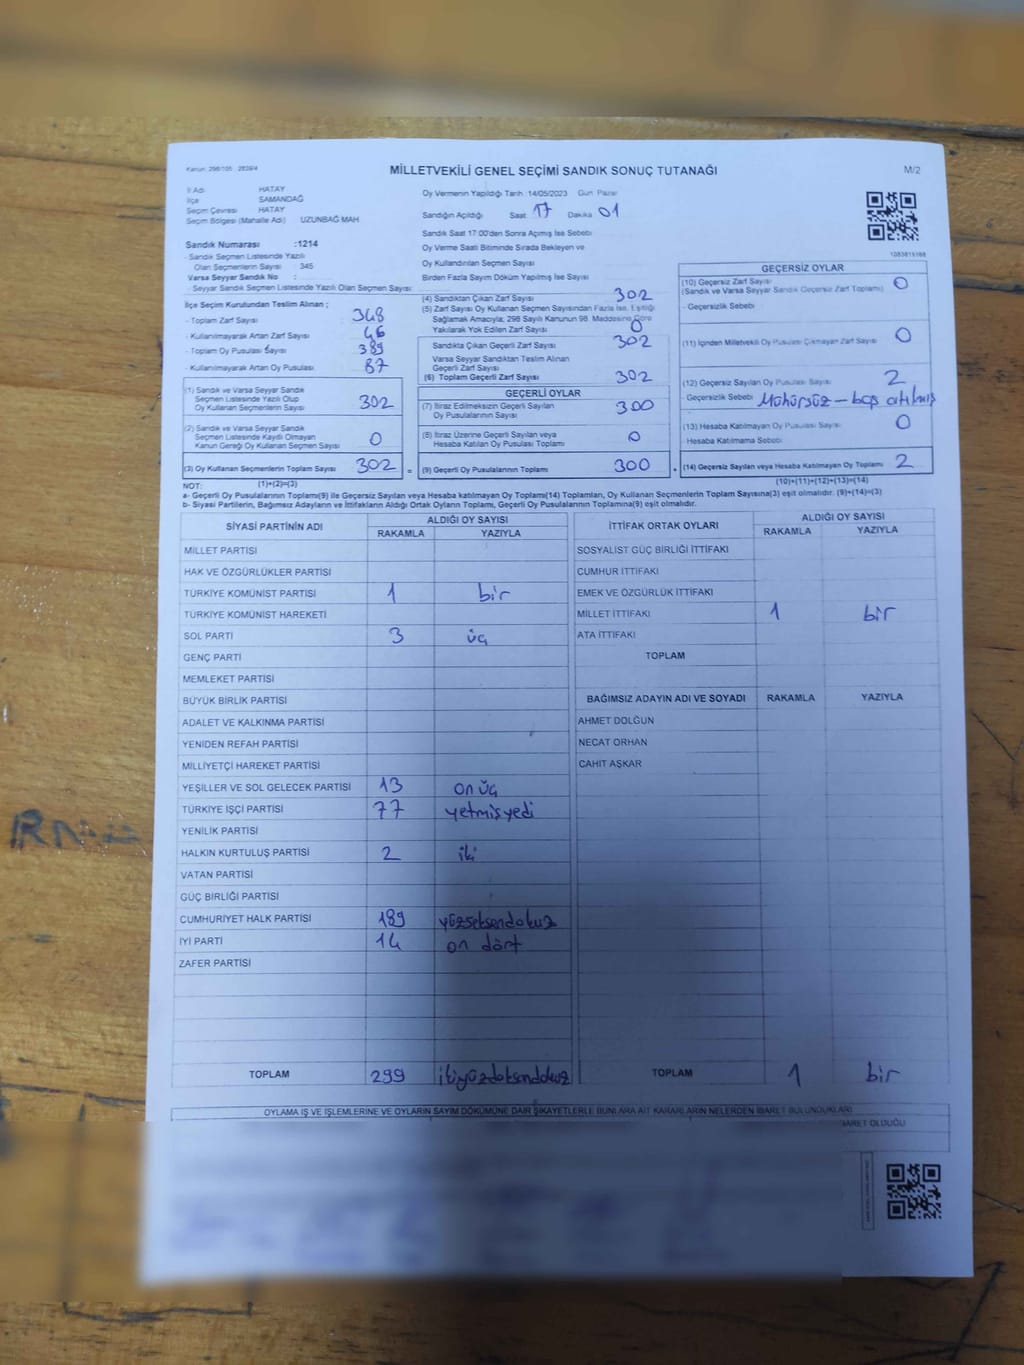 Kanun: 298/105 2839/4
MİLLETVEKİLİ GENEL SEÇİMİ SANDIK SONUÇ TUTANAĞI
M/2
İl Adı HATAY
İlçe SAMANDAĞ
Seçim Çevresi HATAY
Seçim Bölgesi (Mahalle Adı) UZUNBAĞ MAH.
Oy Vermenin Yapıldığı Tarih :14/05/2023 Gün Pazar
Sandığın Açıldığı Saat 17 Dakika 01
Sandık Saat 17:00'den Sonra Açımış İse Sebebi
Oy Verme Saati Bitiminde Sırada Bekleyen ve
Oy Kullandırılan Seçmen Sayısı
Birden Fazla Sayım Döküm Yapılmış İse Sayısı
1083815168
Sandık Numarası :1214
- Sandık Seçmen Listesinde Yazılı
Olan Seçmenlerin Sayısı 345
Varsa Seyyar Sandık No :
- Seyyar Sandık Seçmen Listesinde Yazılı Olan Seçmen Sayısı:
İlçe Seçim Kurulundan Teslim Alınan ;
- Toplam Zarf Sayısı : 348
- Kullanılmayarak Artan Zarf Sayısı : 46
- Toplam Oy Pusulası Sayısı : 389
- Kullanılmayarak Artan Oy Pusulası : 87
(1) Sandık ve Varsa Seyyar Sandık
Seçmen Listesinde Yazılı Olup
Oy Kullanan Seçmenlerin Sayısı 302
(2) Sandık ve Varsa Seyyar Sandık
Seçmen Listesinde Kayıtlı Olmayan
Kanun Gereği Oy Kullanan Seçmen Sayısı 0
(3) Oy Kullanan Seçmenlerin Toplam Sayısı 302
(1)+(2)=(3)
(4) Sandıktan Çıkan Zarf Sayısı 302
(5) Zarf Sayısı Oy Kullanan Seçmen Sayısından Fazla İse, Eşitliği
Sağlamak Amacıyla; 298 Sayılı Kanunun 98. Maddesine Göre
Yakılarak Yok Edilen Zarf Sayısı 0
Sandıkta Çıkan Geçerli Zarf Sayısı 302
Varsa Seyyar Sandıktan Teslim Alınan
Geçerli Zarf Sayısı
(6) Toplam Geçerli Zarf Sayısı 302
GEÇERLİ OYLAR
(7) İtiraz Edilmeksizin Geçerli Sayılan
Oy Pusulalarının Sayısı 300
(8) İtiraz Üzerine Geçerli Sayılan veya
Hesaba Katılan Oy Pusulası Toplamı 0
= (9) Geçerli Oy Pusulalarının Toplamı 300
GEÇERSİZ OYLAR
(10) Geçersiz Zarf Sayısı 0
(Sandık ve Varsa Seyyar Sandık Geçersiz Zarf Toplamı)
- Geçersizlik Sebebi
(11) İçinden Milletvekili Oy Pusulası Çıkmayan Zarf Sayısı 0
(12) Geçersiz Sayılan Oy Pusulası Sayısı 2
Geçersizlik Sebebi Mühürsüz - boş atılmış
(13) Hesaba Katılmayan Oy Pusulası Sayısı 0
Hesaba Katılmama Sebebi
+ (14) Geçersiz Sayılan veya Hesaba Katılmayan Oy Toplamı 2
(10)+(11)+(12)+(13)=(14)
NOT:
a- Geçerli Oy Pusulalarının Toplamı(9) ile Geçersiz Sayılan veya Hesaba katılmayan Oy Toplamı(14) Toplamları, Oy Kullanan Seçmenlerin Toplam Sayısına(3) eşit olmalıdır. (9)+(14)=(3)
b- Siyasi Partilerin, Bağımsız Adayların ve İttifakların Aldığı Ortak Oyların Toplamı, Geçerli Oy Pusulalarının Toplamına(9) eşit olmalıdır.
SİYASİ PARTİNİN ADI ALDIĞI OY SAYISI
RAKAMLA YAZIYLA
MİLLET PARTİSİ
HAK VE ÖZGÜRLÜKLER PARTİSİ
TÜRKİYE KOMÜNİST PARTİSİ 1 bir
TÜRKİYE KOMÜNİST HAREKETİ
SOL PARTİ 3 üç
GENÇ PARTİ
MEMLEKET PARTİSİ
BÜYÜK BİRLİK PARTİSİ
ADALET VE KALKINMA PARTİSİ
YENİDEN REFAH PARTİSİ
MİLLİYETÇİ HAREKET PARTİSİ
YEŞİLLER VE SOL GELECEK PARTİSİ 13 on üç
TÜRKİYE İŞÇİ PARTİSİ 77 yetmişyedi
YENİLİK PARTİSİ
HALKIN KURTULUŞ PARTİSİ 2 iki
VATAN PARTİSİ
GÜÇ BİRLİĞİ PARTİSİ
CUMHURİYET HALK PARTİSİ 189 yüzseksendokuz
İYİ PARTİ 14 on dört
ZAFER PARTİSİ
TOPLAM 299 ikiyüzdoksandokuz
İTTİFAK ORTAK OYLARI ALDIĞI OY SAYISI
RAKAMLA YAZIYLA
SOSYALİST GÜÇ BİRLİĞİ İTTİFAKI
CUMHUR İTTİFAKI
EMEK VE ÖZGÜRLÜK İTTİFAKI
MİLLET İTTİFAKI 1 bir
ATA İTTİFAKI
TOPLAM
BAĞIMSIZ ADAYIN ADI VE SOYADI RAKAMLA YAZIYLA
AHMET DOLĞUN
NECAT ORHAN
CAHİT AŞKAR
TOPLAM 1 bir
OYLAMA İŞ VE İŞLEMLERİNE VE OYLARIN SAYIM DÖKÜMÜNE DAİR ŞİKAYETLERLE BUNLARA AİT KARARLARIN NELERDEN İBARET BULUNDUKLARI
İBARET OLDUĞU